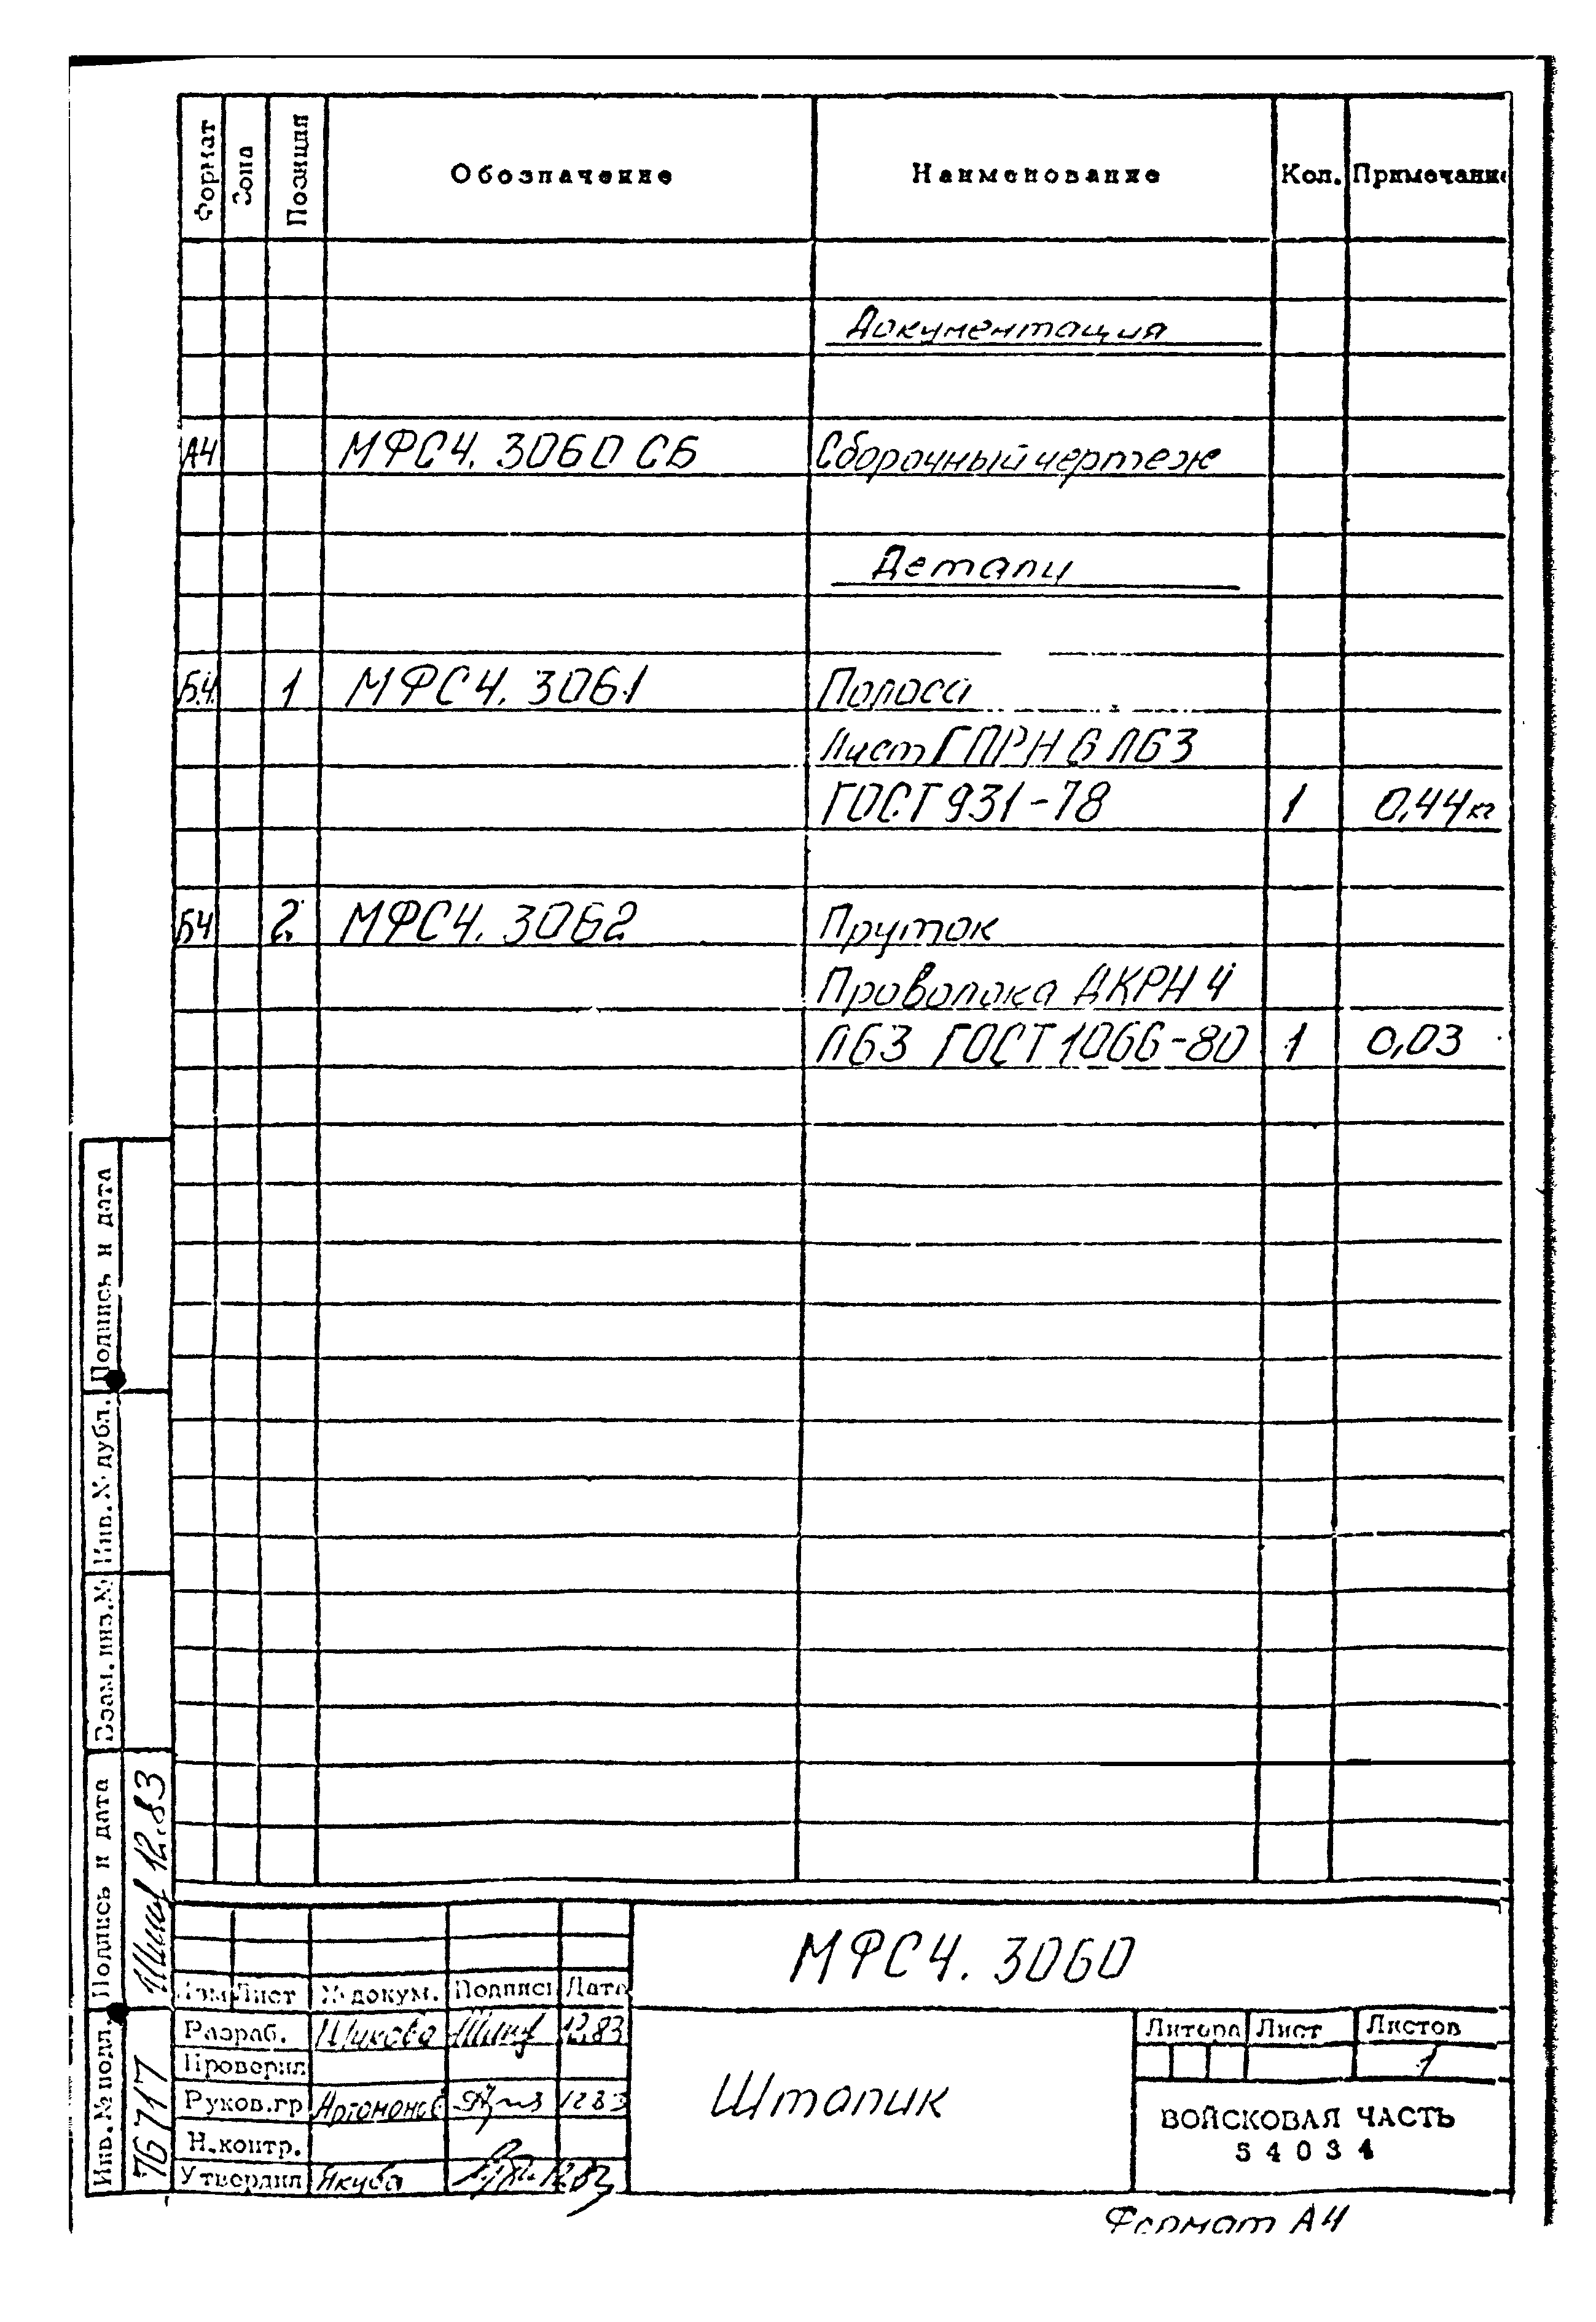 Формат Зона Позиция Обозначение Наименование Кол. Примечание
Документация
А4 МФСЧ. 3060 СБ Сборочный чертеж
Детали
Б.4. 1 МФСЧ. 3061 Полоса
Лист ГПРН 6 Л63
ГОСТ 931-78 1 0,44 кг
Б4 2. МФСЧ. 3062 Пруток
Проволока ДКРН 4
Л63 ГОСТ 1066-80 1 0,03
Подпись и дата
Инв. № дубл.
Взам. инв. №
Подпись и дата 12.83
Инв. № подл. 76717
МФСЧ. 3060
Изм Лист № докум. Подпись Дата
Разраб. 12.83
Проверил
Руков.гр Артамонов 12 83
Н.контр.
Утвердил Якуба 12.83
Штапик
Литера Лист Листов
1
ВОЙСКОВАЯ ЧАСТЬ
54034
Формат А4